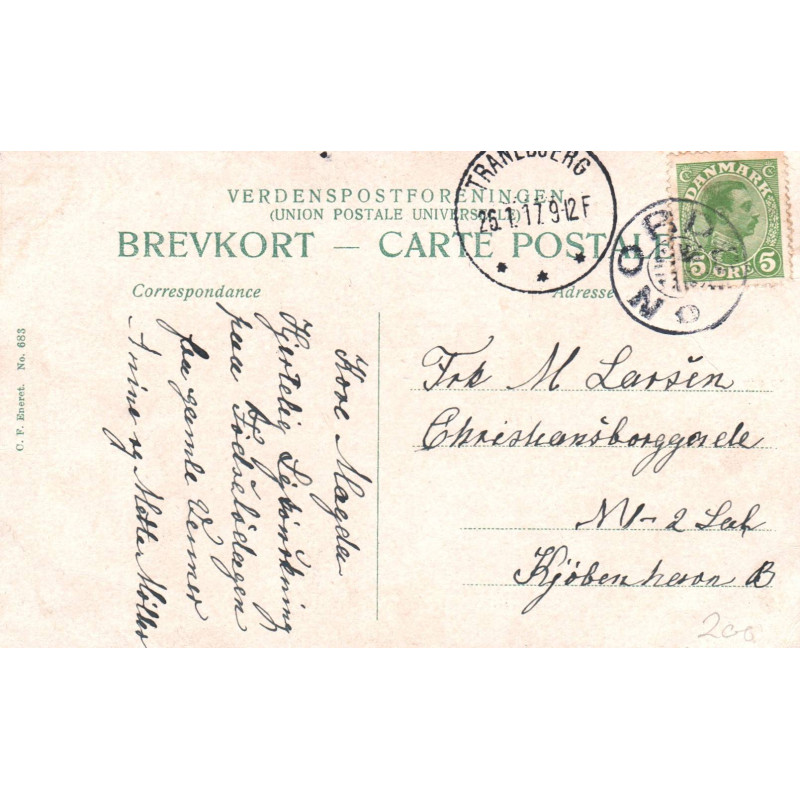 VERDENSPOSTFORENINGEN
(UNION POSTALE UNIVERSELLE)
BREVKORT — CARTE POSTALE
TRANEBJERG
26.1.17. 9-12 F
DANMARK
5 ØRE 5
NORBY
Correspondance
Adresse
Frk M Larsen
Christiansborggade
N1-2 Sal
Kjöbenhavn B
Kære Magda
Hjertelig Lykönskning
paa
Födselsdagen
fra gamle Venner
Anine og Mette Møller
C. F. Eneret. No. 683
200